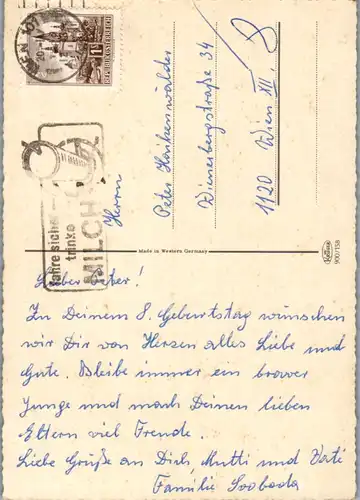 WIEN 101
REPUBLIK ÖSTERREICH
Fahre sicher
trinke
MILCH
Herrn
Peter Hankenwalder
Wienerbergstraße 34
1120 Wien XII.
Made in Western Germany
900/158
Lieber Peter!
Zu Deinem 8. Geburtstag wünschen
wir Dir von Herzen alles Liebe und
Gute. Bleibe immer ein braver
Junge und mach Deinen lieben
Eltern viel Freude.
Liebe Grüße an Dich, Mutti und Vati
Familie Svoboda